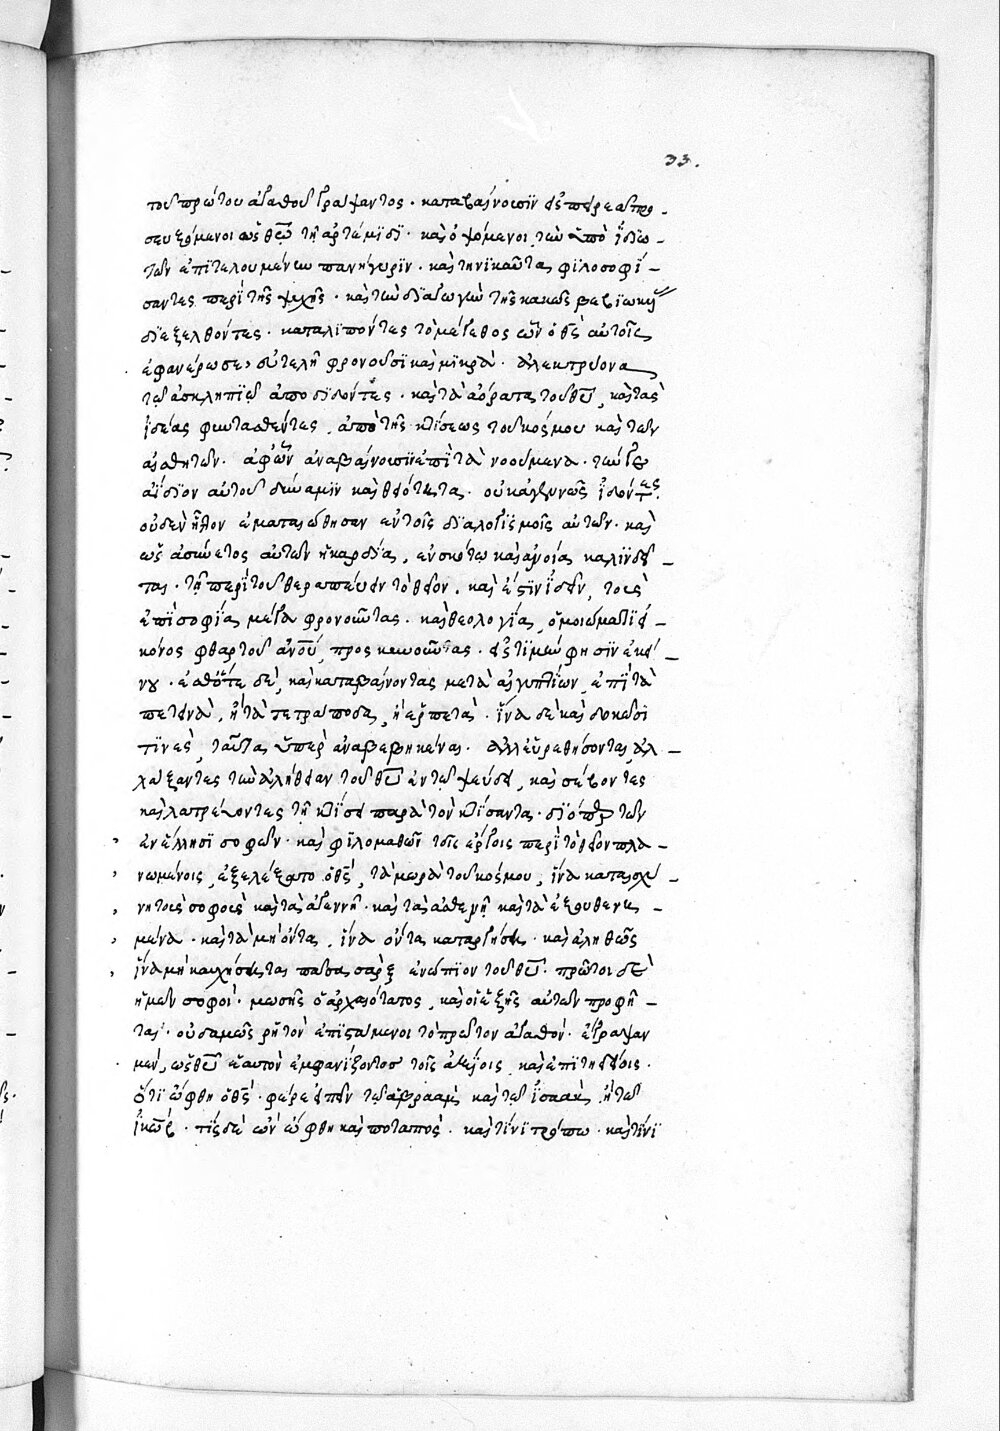 33.
τοῦ πρώτου ἀγαθοῦ γράψαντος. καταβαίνουσιν εἰς πειρεᾶ προ-
σευξόμενοι ὡς θεῷ τῇ ἀρτέμιδι. καὶ ὀψόμενοι τὴν ὑπὸ ἰδιω-
τῶν ἐπιτελουμένην πανήγυριν. καὶ τηνικαῦτα φιλοσοφή-
σαντες περὶ τῆς ψυχῆς. καὶ τὴν διαγωγὴν τῆς καλῶς βεβιωκυί
διεξελθόντες. καταλιπόντες τὸ μέγεθος ὧν ὁ θς αὐτοῖς
ἐφανέρωσεν, εὐτελῆ φρονοῦσι καὶ μικρὰ. ἀλεκτρυόνα
τῷ ἀσκληπιῷ ἀποδιδόντες. καὶ τὰ ἀόρατα τοῦ θυ, καὶ τὰς
ἰδέας φαντασθέντες, ἀπὸ τῆς κτίσεως τοῦ κόσμου καὶ τῶν
αἰσθητῶν. ἀφ' ὧν ἀναβαίνουσιν ἐπὶ τὰ νοούμενα. τήν τε
ἀΐδιον αὐτοῦ δύναμιν καὶ θειότητα. οὐκ ἀγεννῶς ἰδόντες
οὐδὲν ἧττον ἐματαιώθησαν ἐν τοῖς διαλογισμοῖς αὐτῶν. καὶ
ὡς ἀσύνετος αὐτῶν ἡ καρδία, ἐν σκότῳ καὶ ἀγνοία καλινδεῖ-
ται. τῇ περὶ τοῦ θεραπεύειν τὸ θεῖον. καὶ ἔστιν ἰδεῖν, τοὺς
ἐπὶ σοφία μέγα φρονοῦντας. καὶ θεολογία, ὁμοιώματι εἰ-
κόνος φθαρτοῦ ἀνου, προσκυνοῦντας. εἰς τιμήν φησιν ἐκεί-
νου. ἔσθ' ὅτε δὲ, καὶ καταβαίνοντας μετὰ αἰγυπτίων, ἐπὶ τὰ
πετεινὰ, ἢ τὰ τετράποδα, ἢ ἑρπετὰ. ἵνα δὲ καὶ δοκῶσι
τινὲς, ταῦτα ὑπεραναβεβηκέναι. ἀλλ' εὑρεθήσονται ἀλ-
λάξαντες τὴν ἀλήθειαν τοῦ θυ ἐν τῷ ψεύδει, καὶ σέβοντες
καὶ λατρεύοντες τῇ κτίσει παρὰ τὸν κτίσαντα. διόπερ τῶν
ἐν ἕλλησι σοφῶν. καὶ φιλομαθῶν τοῖς ἔργοις περὶ τὸ θεῖον πλα-
νωμένοις, ἐξελέξατο ὁ θς, τὰ μωρὰ τοῦ κόσμου, ἵνα καταισχύ-
νῃ τοὺς σοφοὺς καὶ τὰ ἀγεννῆ. καὶ τὰ ἀσθενῆ καὶ τὰ ἐξουθενη-
μένα. καὶ τὰ μὴ ὄντα, ἵνα ὄντα καταργήσῃ. καὶ ἀληθῶς
ἵνα μὴ καυχήσηται πᾶσα σὰρξ ἐνώπιον τοῦ θυ. πρῶτοι δὲ
ἡμῶν σοφοὶ. μωσῆς ὁ ἀρχαιότατος, καὶ οἱ ἑξῆς αὐτῶν προφῆ-
ται. οὐδαμῶς ῥητὸν ἐπιστάμενοι τὸ πρῶτον ἀγαθόν. ἔγραψαν
μὲν, ὡς θυ ἑαυτὸν ἐμφανίζοντος τοῖς ἀξίοις, καὶ ἐπιτηδείοις.
ὅτι ὤφθη ὁ θς. φέρε εἰπεῖν τῷ ἀβραὰμ καὶ τῷ ἰσαὰκ, ἢ τῷ
ἰακώβ. τίς δὲ ὢν ὤφθη καὶ ποταπὸς. καὶ τίνι τρόπω. καὶ τίνι